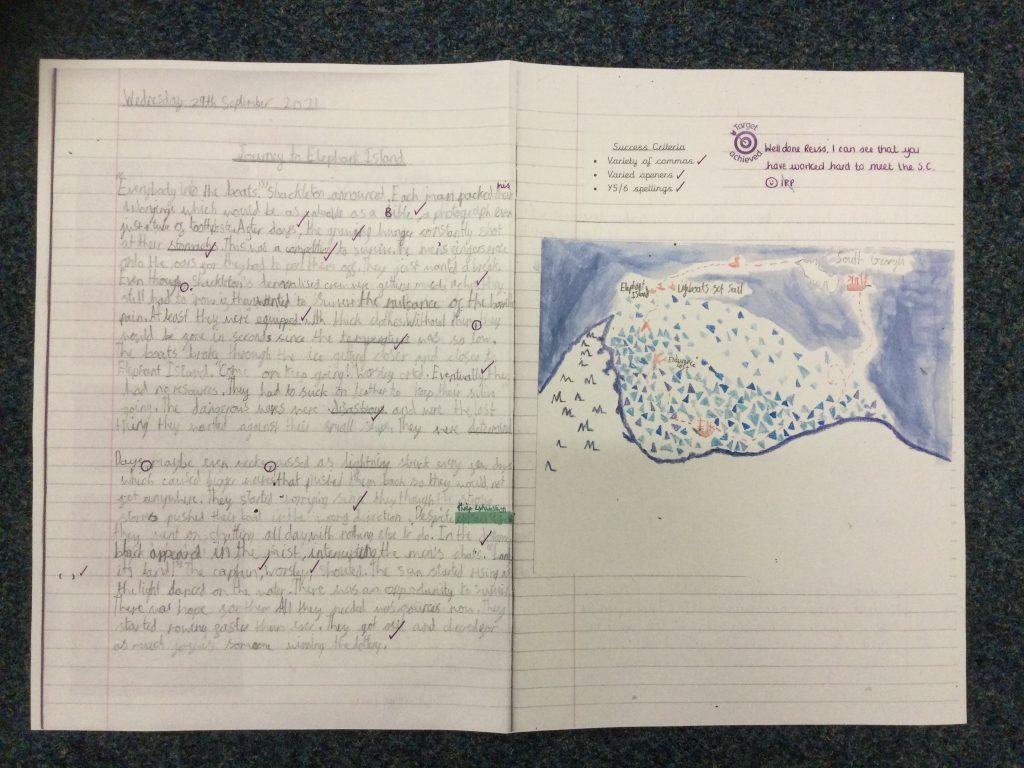 Wednesday 29th September 2021
Journey to Elephant Island
"Everybody into the boats." Shackleton announced. Each man packed their his
belongings which would be as valuable as a Bible, a photograph even
just a tube of toothpaste. After days, the hunger constantly shot
at their stomachs. This was a competition to survive. The men's fingers
onto the oars for they had to they just wanted a break.
Even though Shackleton's demoralised crew were getting much
still had to row if they wanted to survive the nuisance of the
pain. At least they were equipped with thick clothes. Without them they
would be gone in seconds since the temperature was so low.
The boats broke through the ice getting closer and closer to
Elephant Island. on keep going! Worsley Eventually, they
had no resources. They had to suck on leather to keep their saliva
going. The dangerous waves were disastrous and were the last
thing they wanted against their small ships. They were determined
Days maybe even weeks passed as lightning struck every few days
which caused bigger waves that pushed them back so they would not
get anywhere. They started worrying since they thought the strong
storms pushed their boat in the wrong direction. Despite their exhaustion
they went on chatting all day with nothing else to do. In the
black appeared in the mist, interrupting the men's chats. Land
it's land!" The captain, Worsley, shouted. The sun started rising as
the light danced on the water. There was an opportunity to survive.
There was hope for them. All they needed was resources now. They
started rowing faster than ever. They got off and cheered for
as much joy as someone winning the lottery.
Success Criteria
• Variety of commas
• Varied openers
• Y5/6 spellings
Target achieved
Well done Reiss, I can see that you
have worked hard to meet the S.C.
South Georgia
Elephant Island
Lifeboats set sail
Endurance